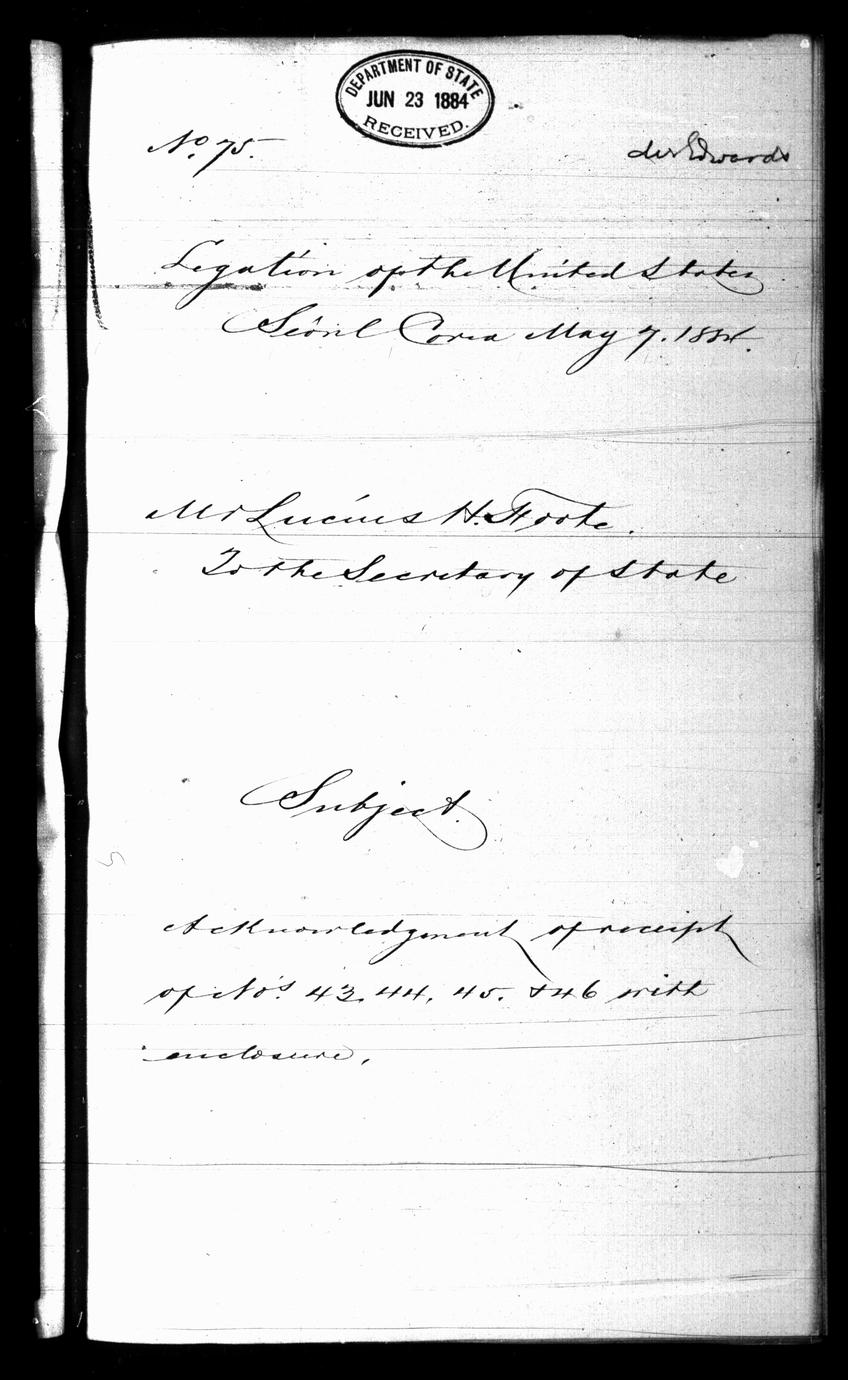 DEPARTMENT OF STATE
JUN 23 1884
RECEIVED.
No. 75.
Edwards
Legation of the United States
Séoul Corea May 7. 1884.
Mr Lucius H. Foote.
To the Secretary of State
Subject.
Acknowledgment of receipt
of No's 43, 44, 45. & 46 with
enclosure.